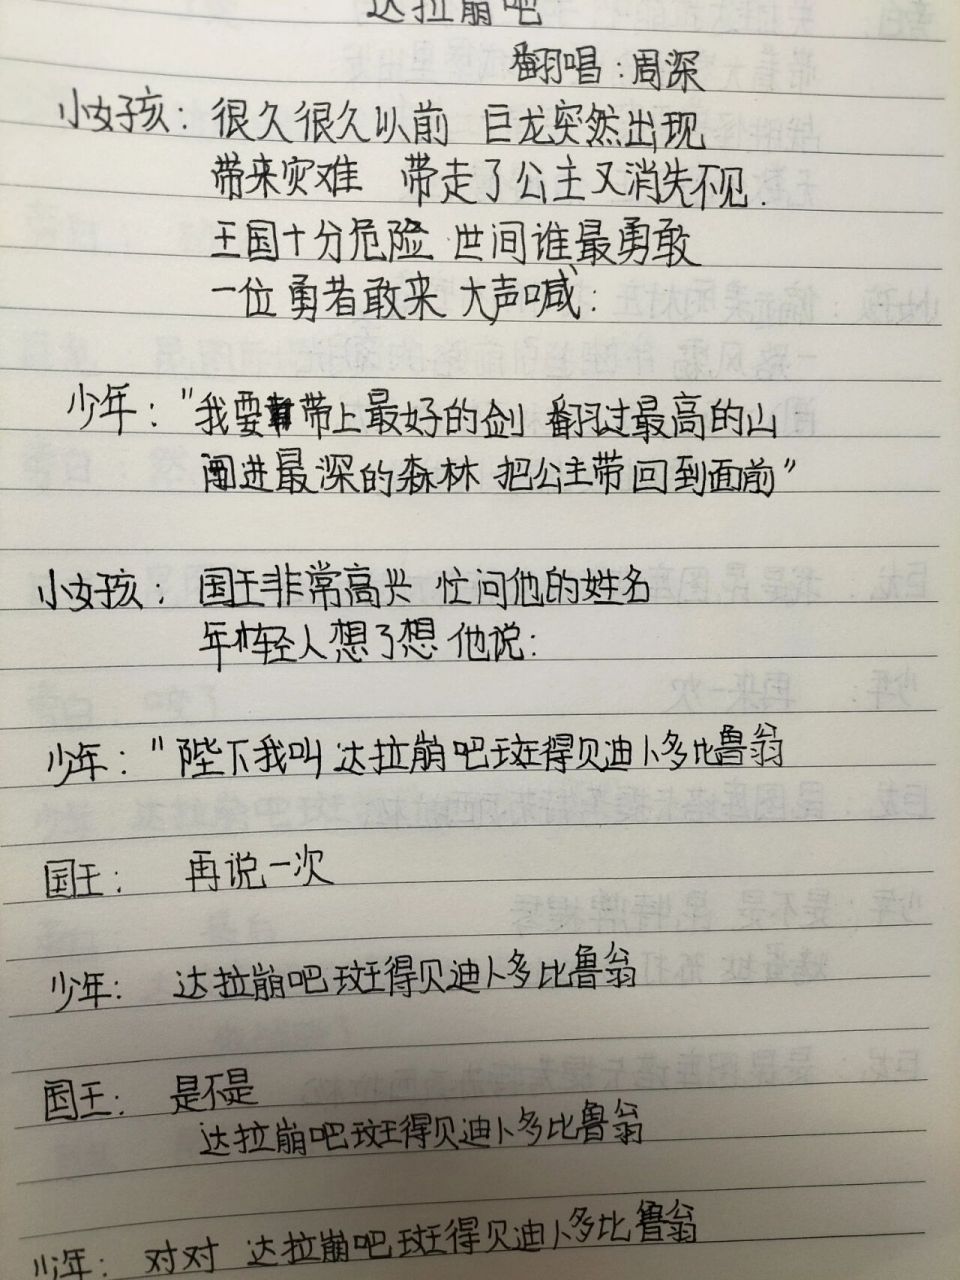 达拉崩吧
翻唱：周深
小女孩：很久很久以前 巨龙突然出现
带来灾难 带走了公主又消失不见.
王国十分危险 世间谁最勇敢
一位勇者敢来 大声喊：
少年："我要带上最好的剑 翻过最高的山
闯进最深的森林 把公主带回到面前"
小女孩：国王非常高兴 忙问他的姓名
年轻人想了想 他说：
少年："陛下我叫 达拉崩吧斑得贝迪卜多比鲁翁
国王：再说一次
少年：达拉崩吧斑得贝迪卜多比鲁翁
国王：是不是
达拉崩吧斑得贝迪卜多比鲁翁
少年：对对 达拉崩吧斑得贝迪卜多比鲁翁